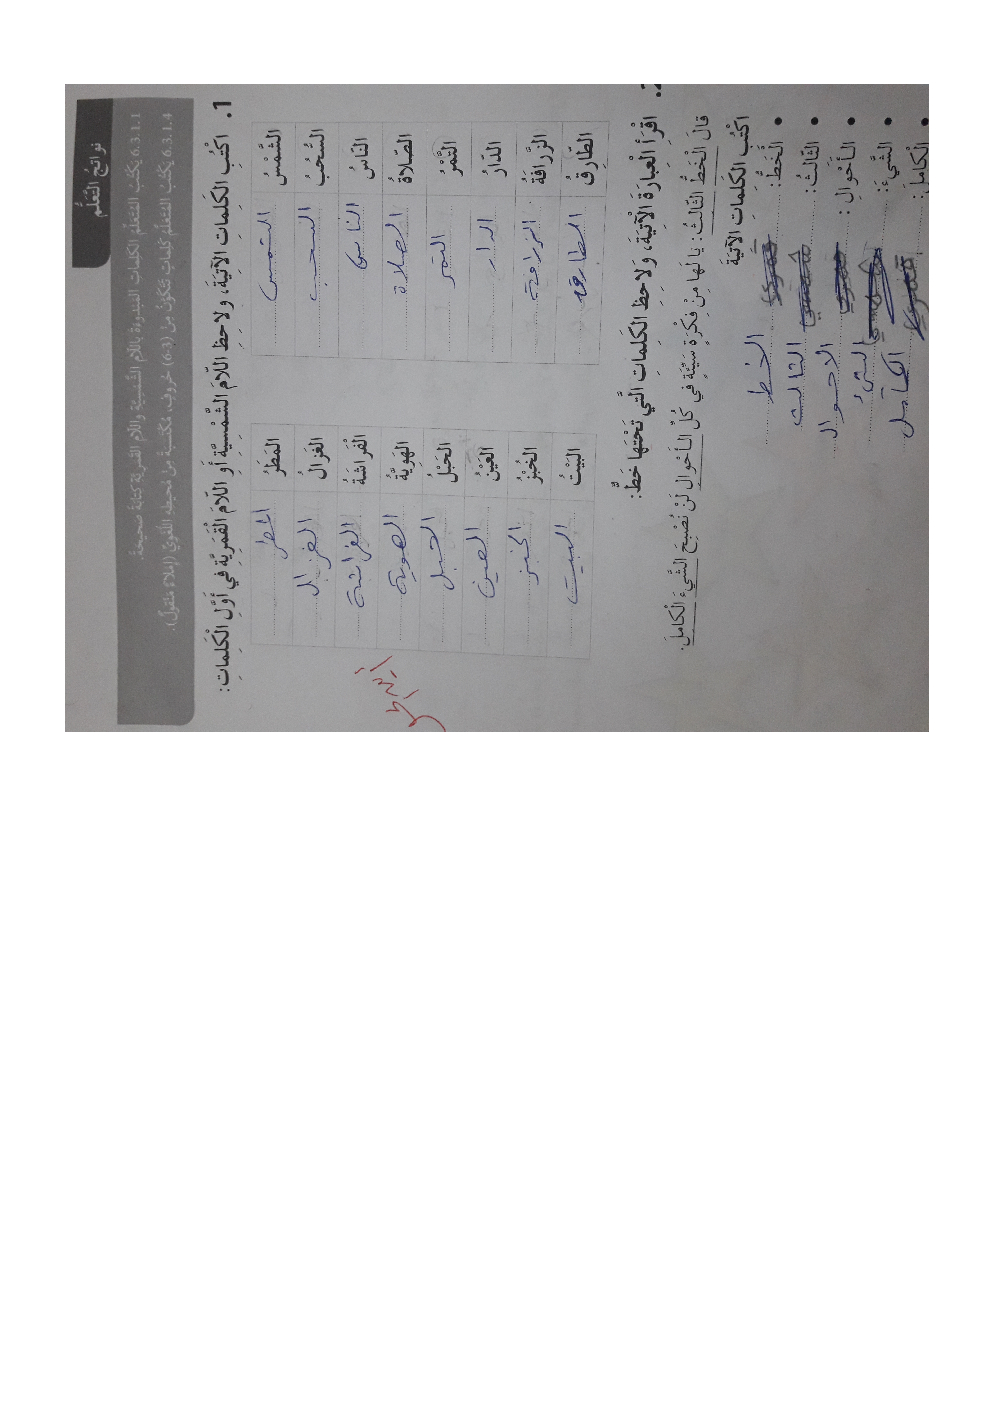 نواتج التعلم
6.3.1.1 يكتب المتعلم الكلمات المبدوءة باللام الشمسية واللام القمرية كتابة صحيحة.
6.3.1.4 يكتب المتعلم كلمات تتكون من (3-6) حروف، مكتسبة من محيطه اللغوي (إملاء منقول).
1. اكْتُبِ الكَلِماتِ الآتِيَةَ، ولاحِظِ اللّامَ الشَّمْسِيَّةَ أَوِ اللّامَ الْقَمَرِيَّةَ في أَوَّلِ الْكَلِماتِ:
الشَّمْسُ الشمس المَطَرُ المطر
السُّحُبُ السحب الغَزالُ الغزال
النّاسُ الناس الْفَراشَةُ الفراشة
الصَّلاةُ الصلاة الهَوِيَّةُ الهوية
التَّمْرُ التمر الحَبْلُ الحبل
الدّارُ الدار العَيْنُ العين
الزَّرافَةُ الزرافة الخُبْزُ الخبز
الطّارِقُ الطارق البَيْتُ البيت
2. اقْرَأِ الْعِبارَةَ الْآتِيَةَ، وَلاحِظِ الكَلِماتِ الَّتي تَحْتَها خَطٌّ:
قالَ الْخَطُّ الثّالِثُ: يا لَها مِنْ فِكْرَةٍ سَيِّئَةٍ في كُلِّ الْأَحْوالِ لَنْ نُصْبِحَ الشَّيْءَ الْكامِلَ.
اكْتُبِ الكَلِماتِ الآتِيَةَ
• الْخَطُّ: الخط
• الثّالِثُ: الثالث
• الْأَحْوالِ: الاحوال
• الشَّيْءَ: الشيء
• الْكامِلَ: الكامل